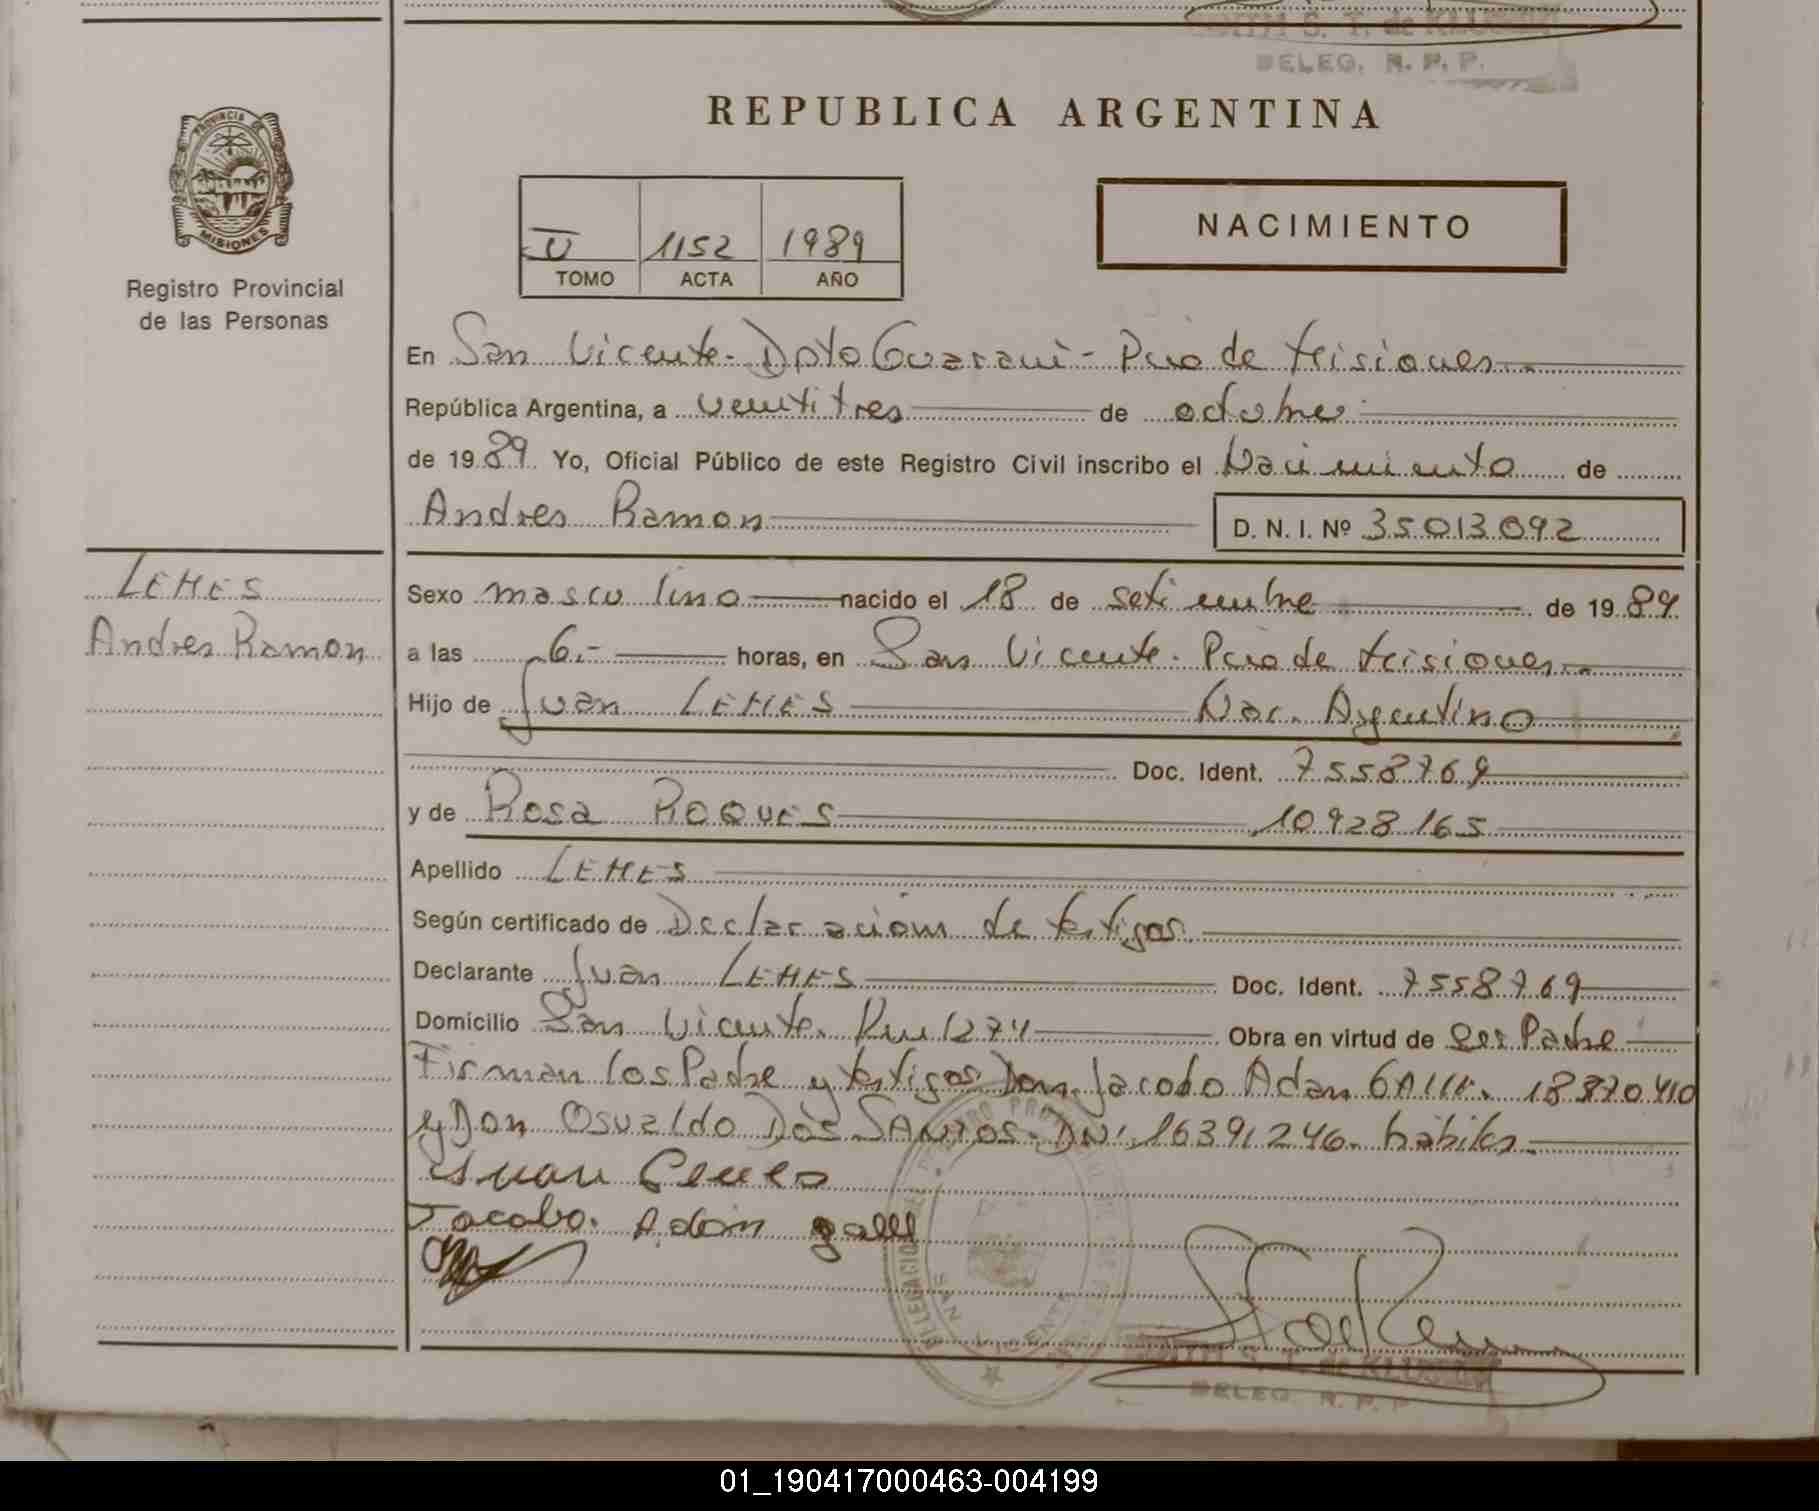 DELEG. R. P. P.
REPUBLICA ARGENTINA
PROVINCIA DE
MISIONES
Registro Provincial
de las Personas
1152 1989
TOMO ACTA AÑO
NACIMIENTO
En San Vicente - Dpto Guarani - Pcia de Misiones
República Argentina, a ventitres de octubre
de 1989 Yo, Oficial Público de este Registro Civil inscribo el Nacimiento de
Andres Ramon D. N. I. Nº 35013092
LEMES
Andres Ramon
Sexo masculino nacido el 18 de setiembre de 1989
a las 6.- horas, en San Vicente - Pcia de Misiones
Hijo de Juan LEMES Nac. Argentino
Doc. Ident. 7558769
y de Rosa ROQUES 10928165
Apellido LEMES
Según certificado de Declaración de testigos
Declarante Juan LEMES Doc. Ident. 7558769
Domicilio San Vicente. Km 1274 Obra en virtud de Ser Padre
Firman los Padre y testigos Don Jacobo Adan 18370410
y Don Osvaldo Dos SANTOS. DNI 16391246. habiles
Juan Lemes
Jacobo. Adan galli
SAN VICENTE
DELEG. R. P. P.
01_190417000463-004199